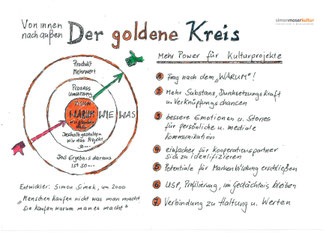 Von innen
nach außen
Der goldene Kreis
simonmoserkultur
Produkt
Mehrwert
Prozess
WARUM
WIE
WAS
Deshalb
wir das Projekt
Das Ergebnis daraus
ist so ....
Entwickler: Simon Sinek, um 2000
"Menschen kaufen nicht was man macht
Sie kaufen warum man es macht"
Mehr Power für Kulturprojekte
1 Frag nach dem "WARUM"!
2 Mehr Substanz, Durchsetzungskraft
u Verknüpfungschancen
3 bessere Emotionen u. Stories
für persönliche u. mediale
Kommunikation
4 einfacher für Kooperationspartner
sich zu identifizieren
5 Potentiale für Markenbildung erschließen
6 USP, Profilierung, im Gedächtnis bleiben
7 Verbindung zu Haltung u. Werten